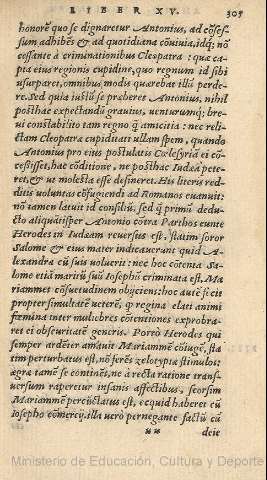 LIBER XV. 305
honorē quo se dignaretur Antonius, ad cōses-
sum adhibēs & ad quotidiana cōuiuia, idq; nō
cessante à criminationibus Cleopatra: quæ ca-
pta eius regionis cupidine, quo regnum id sibi
usurparet, omnibus modis quærebat illū perde-
re. Sed quia iustū se præberet Antonius, nihil
posthac expectandū grauius, uenturumq; bre-
ui constabilito tam regno q̄ amicitia: nec reli-
ctam Cleopatræ cupiditati ullam spem, quando
Antonius pro eius postulatis Cœlesyriā ei cō-
cessisset, hac cōditione, ne posthac Iudæā pete-
ret, & ut molesta esse desineret. His literis red-
ditis voluntas cōfugiendi ad Romanos euanuit:
nō tamen latuit id consiliū. sed q̄ primū dedu-
cto aliquātisper Antonio cōtra Parthos cunte
Herodes in Iudæam reuersus est, statim soror
Salome & eius mater indicauerunt quid A-
lexandra cū suis voluerit: nec hoc cōtenta Sa-
lome etiā maritū suū Iosephū criminata est, Ma
riammet cōsuetudinem obijciens: hoc autē fecit
propter simultatē ueterē, q̄ regina elati animi
fœmina inter muliebres cōtentiones exprobra-
ret ei obscuritatē generis. Porrò Herodes qui
semper ardēter amauit Mariammē cōiugē, sta
tim perturbatus est, nō ferēs zelotypiæ stimulos:
ægrā tamē se continēs, ne à recta ratione trans-
uersum raperetur insanis affectibus, seorsim
Mariammē percūctatus est, ecquid haberet cū
Iosepho cōmercij. illa verò pernegante factū cū
deie
Ministerio de Educación, Cultura y Deporte